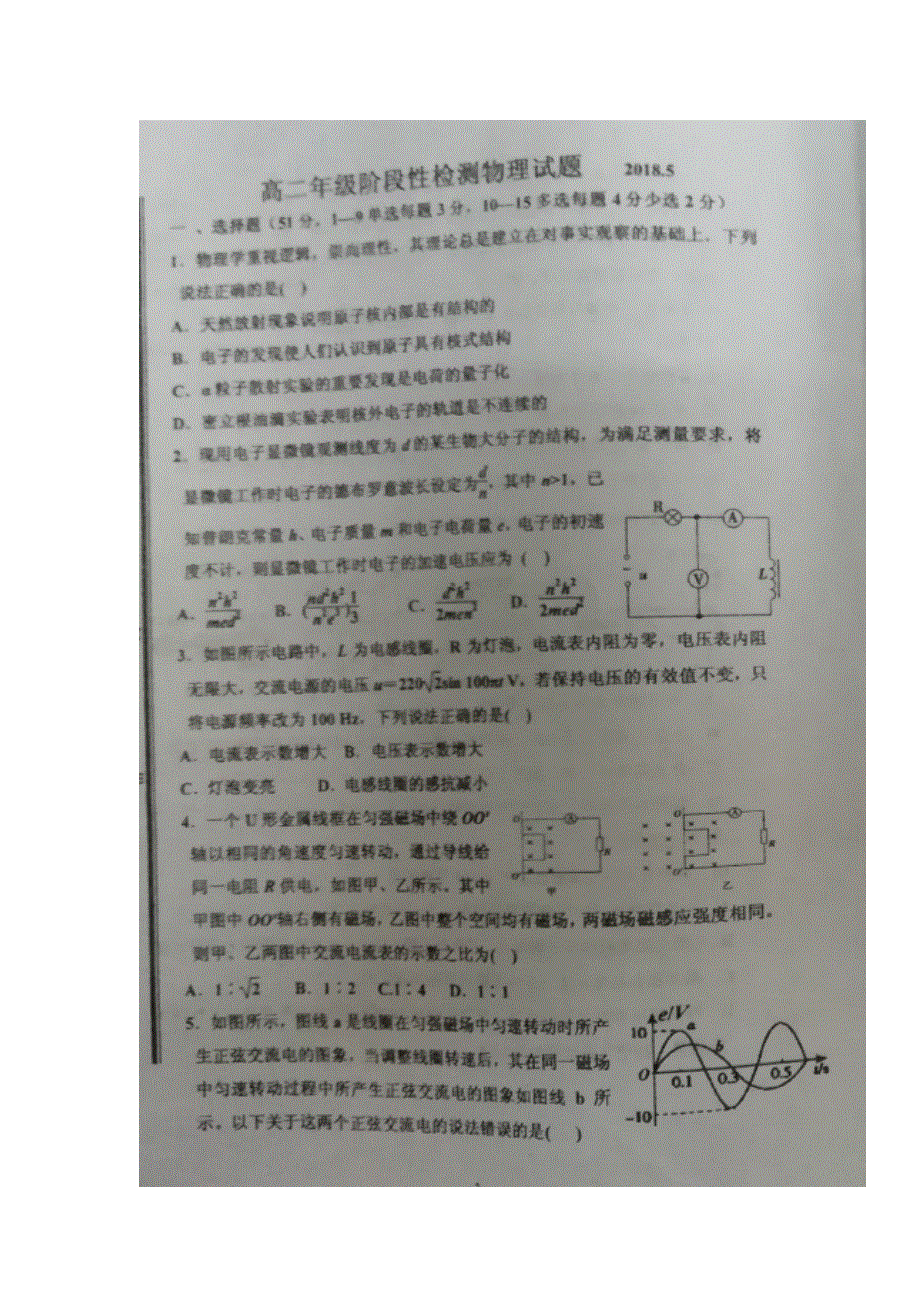 高二年级阶段性检测物理试题 2018.5
一 、选择题（51 分，1—9 单选每题 3 分，10—15 多选每题 4 分少选 2 分）
1．物理学重视逻辑，崇尚理性，其理论总是建立在对事实观察的基础上．下列
说法正确的是( )
A．天然放射现象说明原子核内部是有结构的
B．电子的发现使人们认识到原子具有核式结构
C．α粒子散射实验的重要发现是电荷的量子化
D．密立根油滴实验表明核外电子的轨道是不连续的
2．现用电子显微镜观测线度为 d 的某生物大分子的结构，为满足测量要求，将
显微镜工作时电子的德布罗意波长设定为d/n，其中 n>1，已
知普朗克常量 h、电子质量 m 和电子电荷量 e，电子的初速
度不计，则显微镜工作时电子的加速电压应为（ ）
A．n²h²/med² B． C．d²h²/2men² D．n²h²/2med²
R A u V L
3．如图所示电路中，L 为电感线圈，R 为灯泡，电流表内阻为零，电压表内阻
无限大，交流电源的电压 u＝220√2sin 100πt V，若保持电压的有效值不变，只
将电源频率改为 100 Hz，下列说法正确的是( )
A．电流表示数增大 B．电压表示数增大
C．灯泡变亮 D．电感线圈的感抗减小
4．一个 U 形金属线框在匀强磁场中绕 OO′
轴以相同的角速度匀速转动，通过导线给
同一电阻 R 供电，如图甲、乙所示。其中
甲图中 OO′轴右侧有磁场，乙图中整个空间均有磁场，两磁场磁感应强度相同。
则甲、乙两图中交流电流表的示数之比为( )
O A R O′ 甲
O A R O′ 乙
A．1∶√2 B．1∶2 C.1∶4 D．1∶1
5．如图所示，图线 a 是线圈在匀强磁场中匀速转动时所产
生正弦交流电的图象，当调整线圈转速后，其在同一磁场
中匀速转动过程中所产生正弦交流电的图象如图线 b 所
示，以下关于这两个正弦交流电的说法错误的是( )
e/V 10 a b O 0.1 0.3 0.5 t/s −10